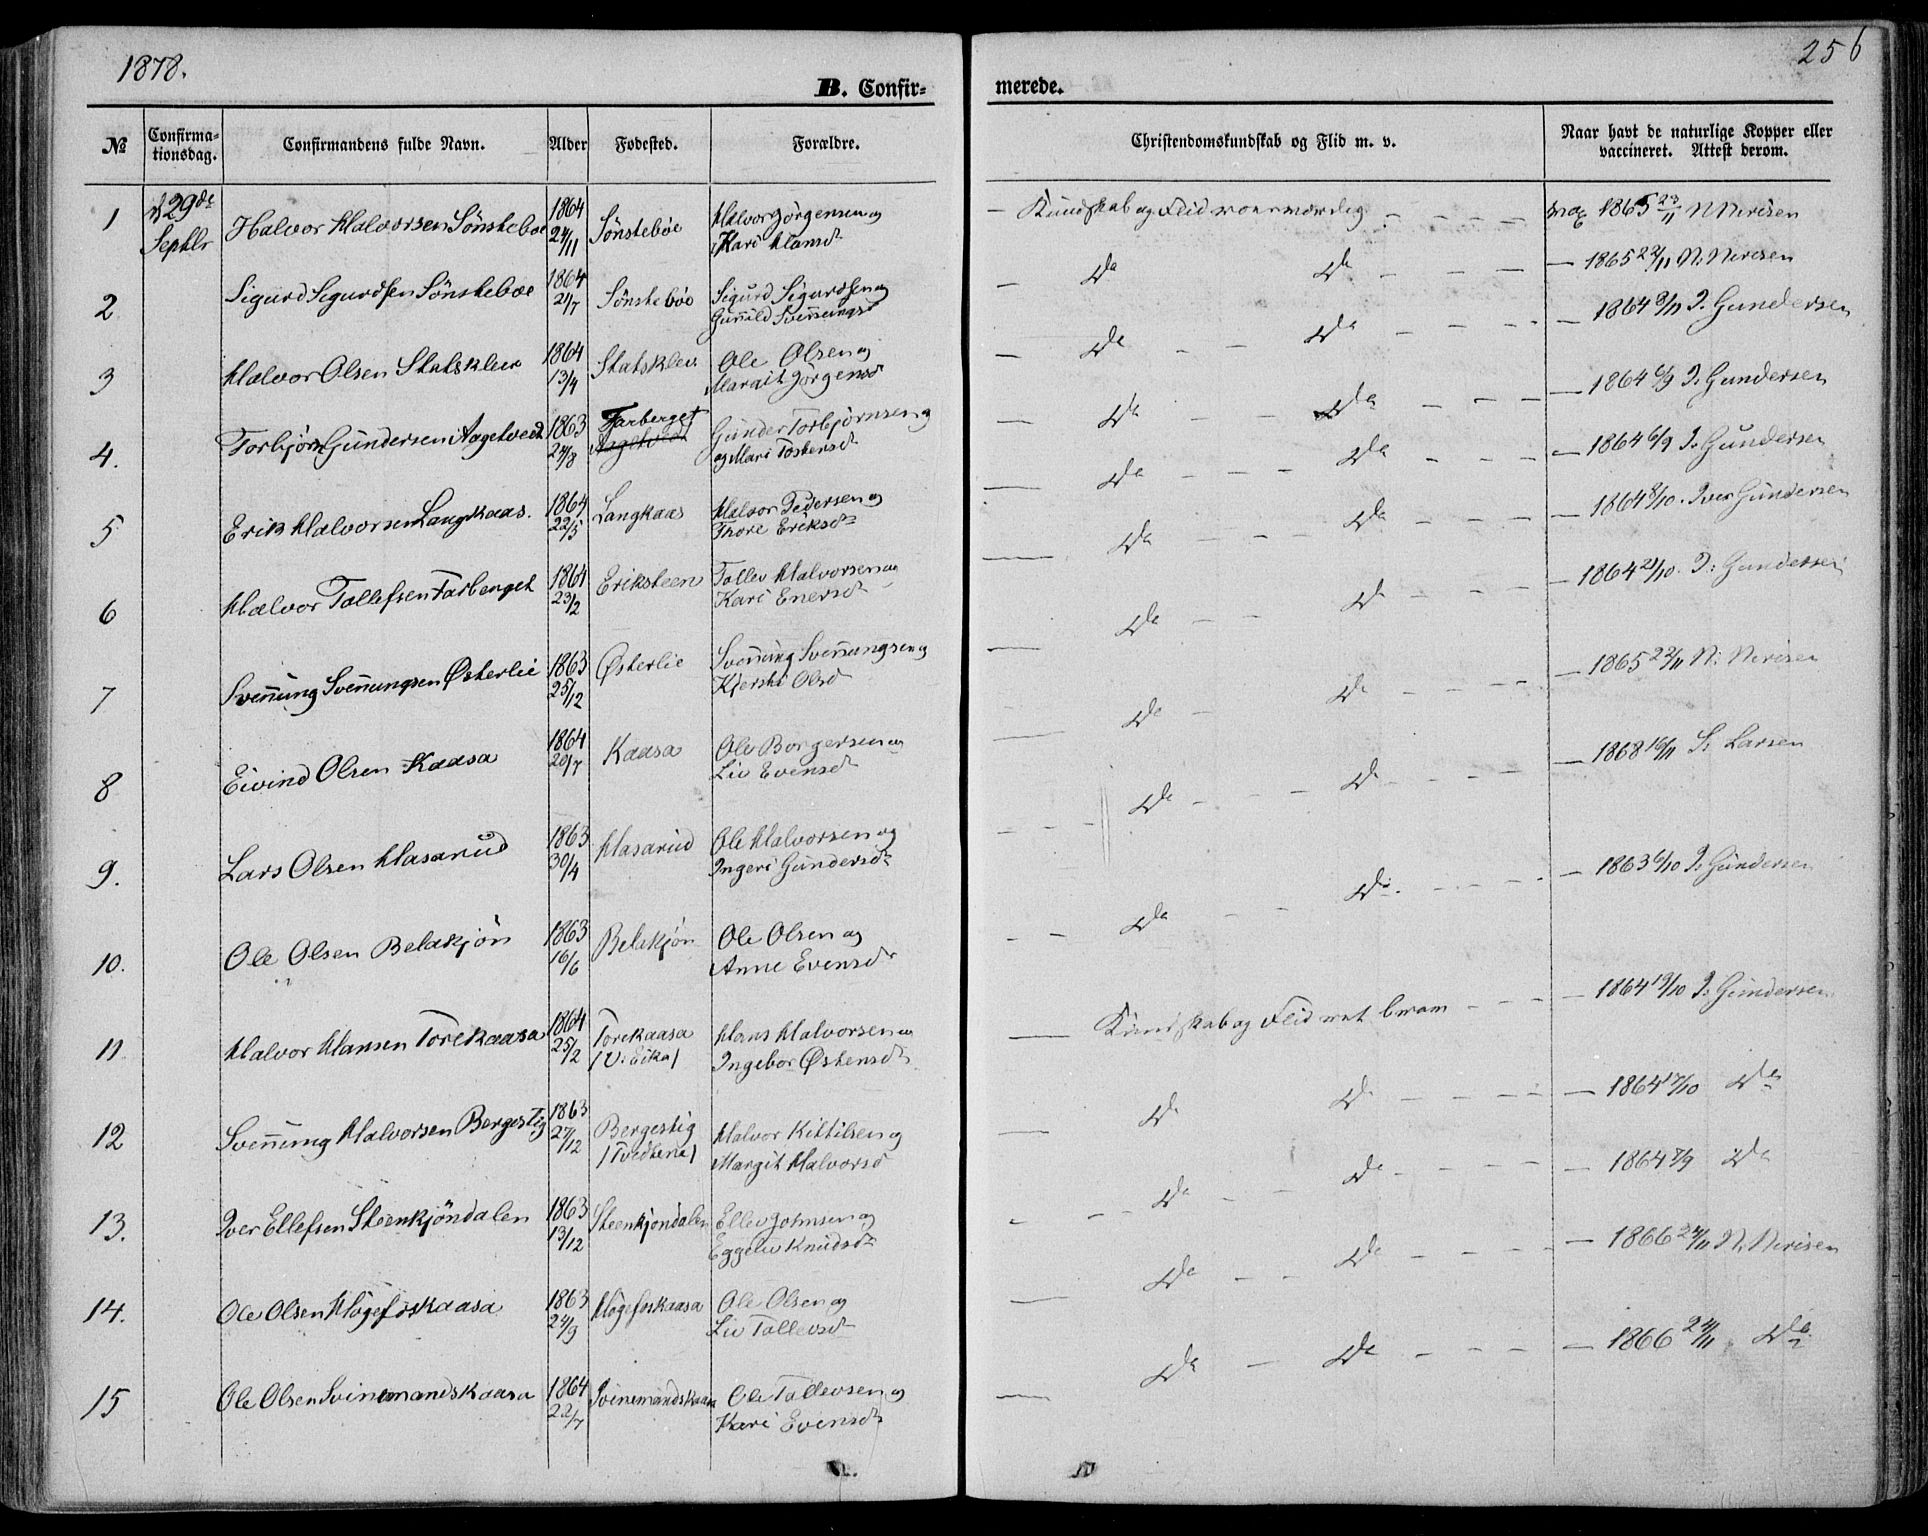 1878.
256
B. Confir-
merede.
№
Confirma-
tionsdag.
Confirmandens fulde Navn.
Alder
Fødested.
Forældre.
Christendomskundskab og Flid m. v.
Naar havt de naturlige Kopper eller
vaccineret. Attest derom.
1 29de Septbr Halvor Halvorsen Sønstebøe 1864 24/11 Sønstebøe Halvor Jørgensen og
Kari Hansd
Kundskab og Flid vac 1865 23/11 N Nerisen
2 Sigurd Sigurdsen Sønstebøe 1864 21/7 Sønstebøe Sigurd Sigurdsen og
Gunild Svenningsd
— Do Do — 1865 22/11 N. Nerisen
3 Halvor Olsen Statsklev 1864 13/4 Statsklev Ole Olsen og
Margit Jørgensd
— Do Do — 1864 8/11 I. Gundersen
4. Torbjørn Gundersen Aagetvedt 1863 24/8 Farberget Aagetvedt Gunder Torbjørnsen og
og Mari Tostensd
— Do Do — 1864 6/9 I. Gundersen
5 Erik Halvorsen Langkaas. 1864 22/5 Langkaas Halvor Pedersen og
Thore Eriksd
— Do Do — 1864 6/9 I. Gundersen
6 Halvor Tollefsen Farberget 1864 23/2 Eriksteen Tollev Halvorsen og
Kari Enersd
— Do Do — 1864 8/10. Iver Gundersen
7 Svennung Svennungsen Østerlie 1863 25/12 Østerlie Svennung Svennungsen og
Kjersti Olsd
— Do Do — 1864 21/10. I. Gundersen
8 Eivind Olsen Kaasa 1864 20/7 Kaasa Ole Borgersen og
Liv Evensd
— Do Do — 1865 22/11 N. Nerisen
9. Lars Olsen Hasarud 1863 30/4 Hasarud Ole Halvorsen og
Ingeri Gundersd
— Do Do — 1868 16/11 S. Larsen
10. Ole Olsen Belakjøn 1863 16/6 Belekjøn Ole Olsen og
Anne Evensd
— Do Do — 1863 6/10 I. Gundersen
11 Halvor Hansen Torekaasa 1864 25/2 Torekaasa
/V. Eika/ Hans Halvorsen og
Ingebor Østensd
— Kundskab og Flid — 1864 19/10 I. Gundersen
12 Svennung Halvorsen Bergestig 1863 27/12 Bergestig
/Tvedtene/ Halvor Kittilsen og
Margit Halvorsd
— Do Do — 1864 17/10 Do
13. Iver Ellefsen Steenkjøndalen 1863 13/12 Steenkjondalen Ellev Johnsen og
Eggeliv Knudsd
— Do Do — 1864 7/9 Do
14. Ole Olsen Høgefoskaasa 1863 24/9 Høgefoskaasa Ole Olsen og
Liv Tollevsd
— Do Do — 1866 24/11 N. Nerisen
15 Ole Olsen Svinemandskaasa 1864 22/7 Svinemandskaasa Ole Tollevsen og
Kari Evensd
— Do Do — 1866 24/11 Do